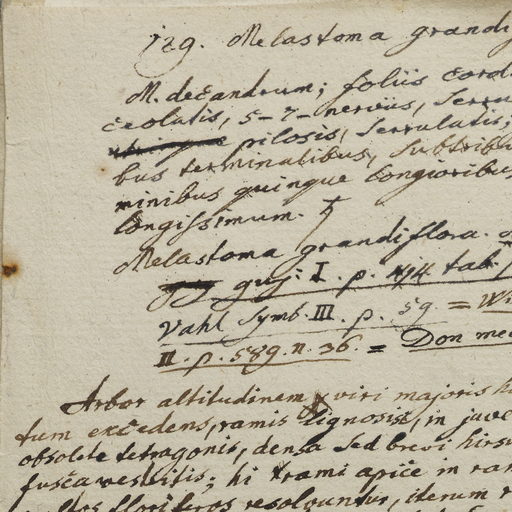 129. Melastoma grandi
M. decandrum; foliis cord
ceolatis, 5-7-nerviis, serru
pilosis, serrulatis;
bus terminalibus, subtribu
minibus quinque longioribus
longissimum.
Melastoma grandiflora.
guj. I. p. 414 tab.
Vahl Symb. III. p. 59. = Wi
II. p. 589. n. 36. = Don mem
Arbor altitudinem viri majoris
tum excedens, ramis lignosis, in juve
obsolete tetragonis, densa sed brevi hirsu
fusca vestitis; hi rami apice in ram
floriferos resolvuntur, iterum